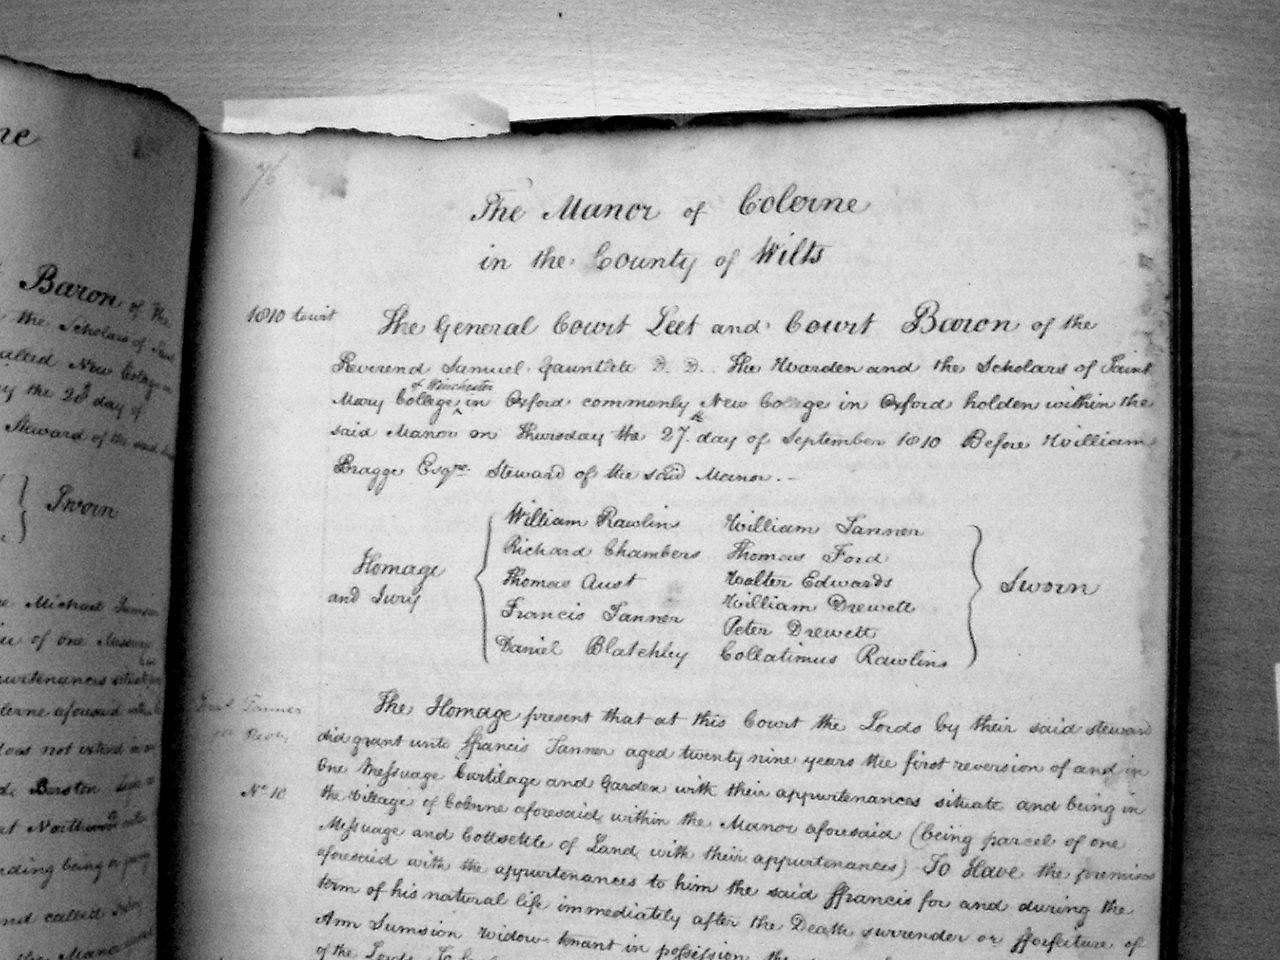 ne
Baron of the
the Scholars of Saint
called New College in
the 20th day of
Steward of the said
Sworn
Michael Sumsion
of one Messuage
appurtenances situate
Colerne aforesaid
does not extend
Barston
at Northwood
ding being
and called
the Manor
76
The Manor of Colerne
in the County of Wilts
1810 Court
The General Court Leet and Court Baron of the
Reverend Samuel Gauntlett D. D. The Warden and the Scholars of Saint
of Winchester
Mary College ^ in Oxford commonly New College in Oxford holden within the
said Manor on Thursday the 27th day of September 1810 Before William
Bragge Esqre. Steward of the said Manor. -
William Rawlins William Tanner
Richard Chambers Thomas Ford
Homage
and Jury
Thomas Aust Walter Edwards
Sworn
Francis Tanner William Drewett
Peter Drewett
Daniel Blatchley Collatinus Rawlins
Fras. Tanner
The Homage present that at this Court the Lords by their said steward
did grant unto ffrancis Tanner aged twenty nine years the first reversion of and in
One Messuage Curtilage and Garden with their appurtenances situate and being in
No. 10
the Village of Colerne aforesaid within the Manor aforesaid (being parcel of one
Messuage and Cottsettle of Land with their appurtenances) To Have the premises
aforesaid with the appurtenances to him the said ffrancis for and during the
term of his natural life immediately after the Death surrender or fforfeiture of
Ann Sumsion Widow tenant in possession the
of the Lords To